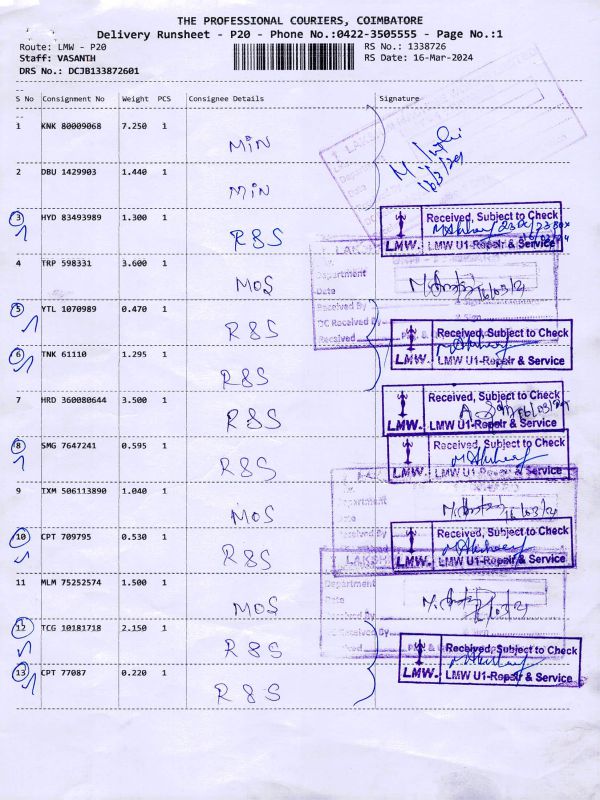 THE PROFESSIONAL COURIERS, COIMBATORE
Delivery Runsheet - P20 - Phone No.:0422-3505555 - Page No.:1
Route: LMW - P20
RS No.: 1338726
Staff: VASANTH
RS Date: 16-Mar-2024
DRS No.: DCJB133872601
S No Consignment No Weight PCS Consignee Details Signature
1 KNK 80009068 7.250 1 MIN
2 DBU 1429903 1.440 1 MIN
3 HYD 83493989 1.300 1 R&S
Received, Subject to Check
LMW. LMW U1-Repair & Service
4 TRP 598331 3.600 1 MOS
Department
Date
16/03/24
Received By
DC Received By
Received
5 YTL 1070989 0.470 1 R&S
Received, Subject to Check
LMW. LMW U1-Repair & Service
6 TNK 61110 1.295 1 R&S
7 HRD 360080644 3.500 1 R&S
Received, Subject to Check
16/03/24
LMW. LMW U1-Repair & Service
8 SMG 7647241 0.595 1 R&S
Received, Subject to Check
LMW. LMW U1-Repair & Service
9 TXM 506113890 1.040 1 MOS
Department
Date
16/03/24
10 CPT 709795 0.530 1 R&S
Received, Subject to Check
LMW. LMW U1-Repair & Service
11 MLM 75252574 1.500 1 MOS
Department
Date
Received By
DC Received By
12 TCG 10181718 2.150 1 R&S
Received, Subject to Check
LMW. LMW U1-Repair & Service
13 CPT 77087 0.220 1 R&S